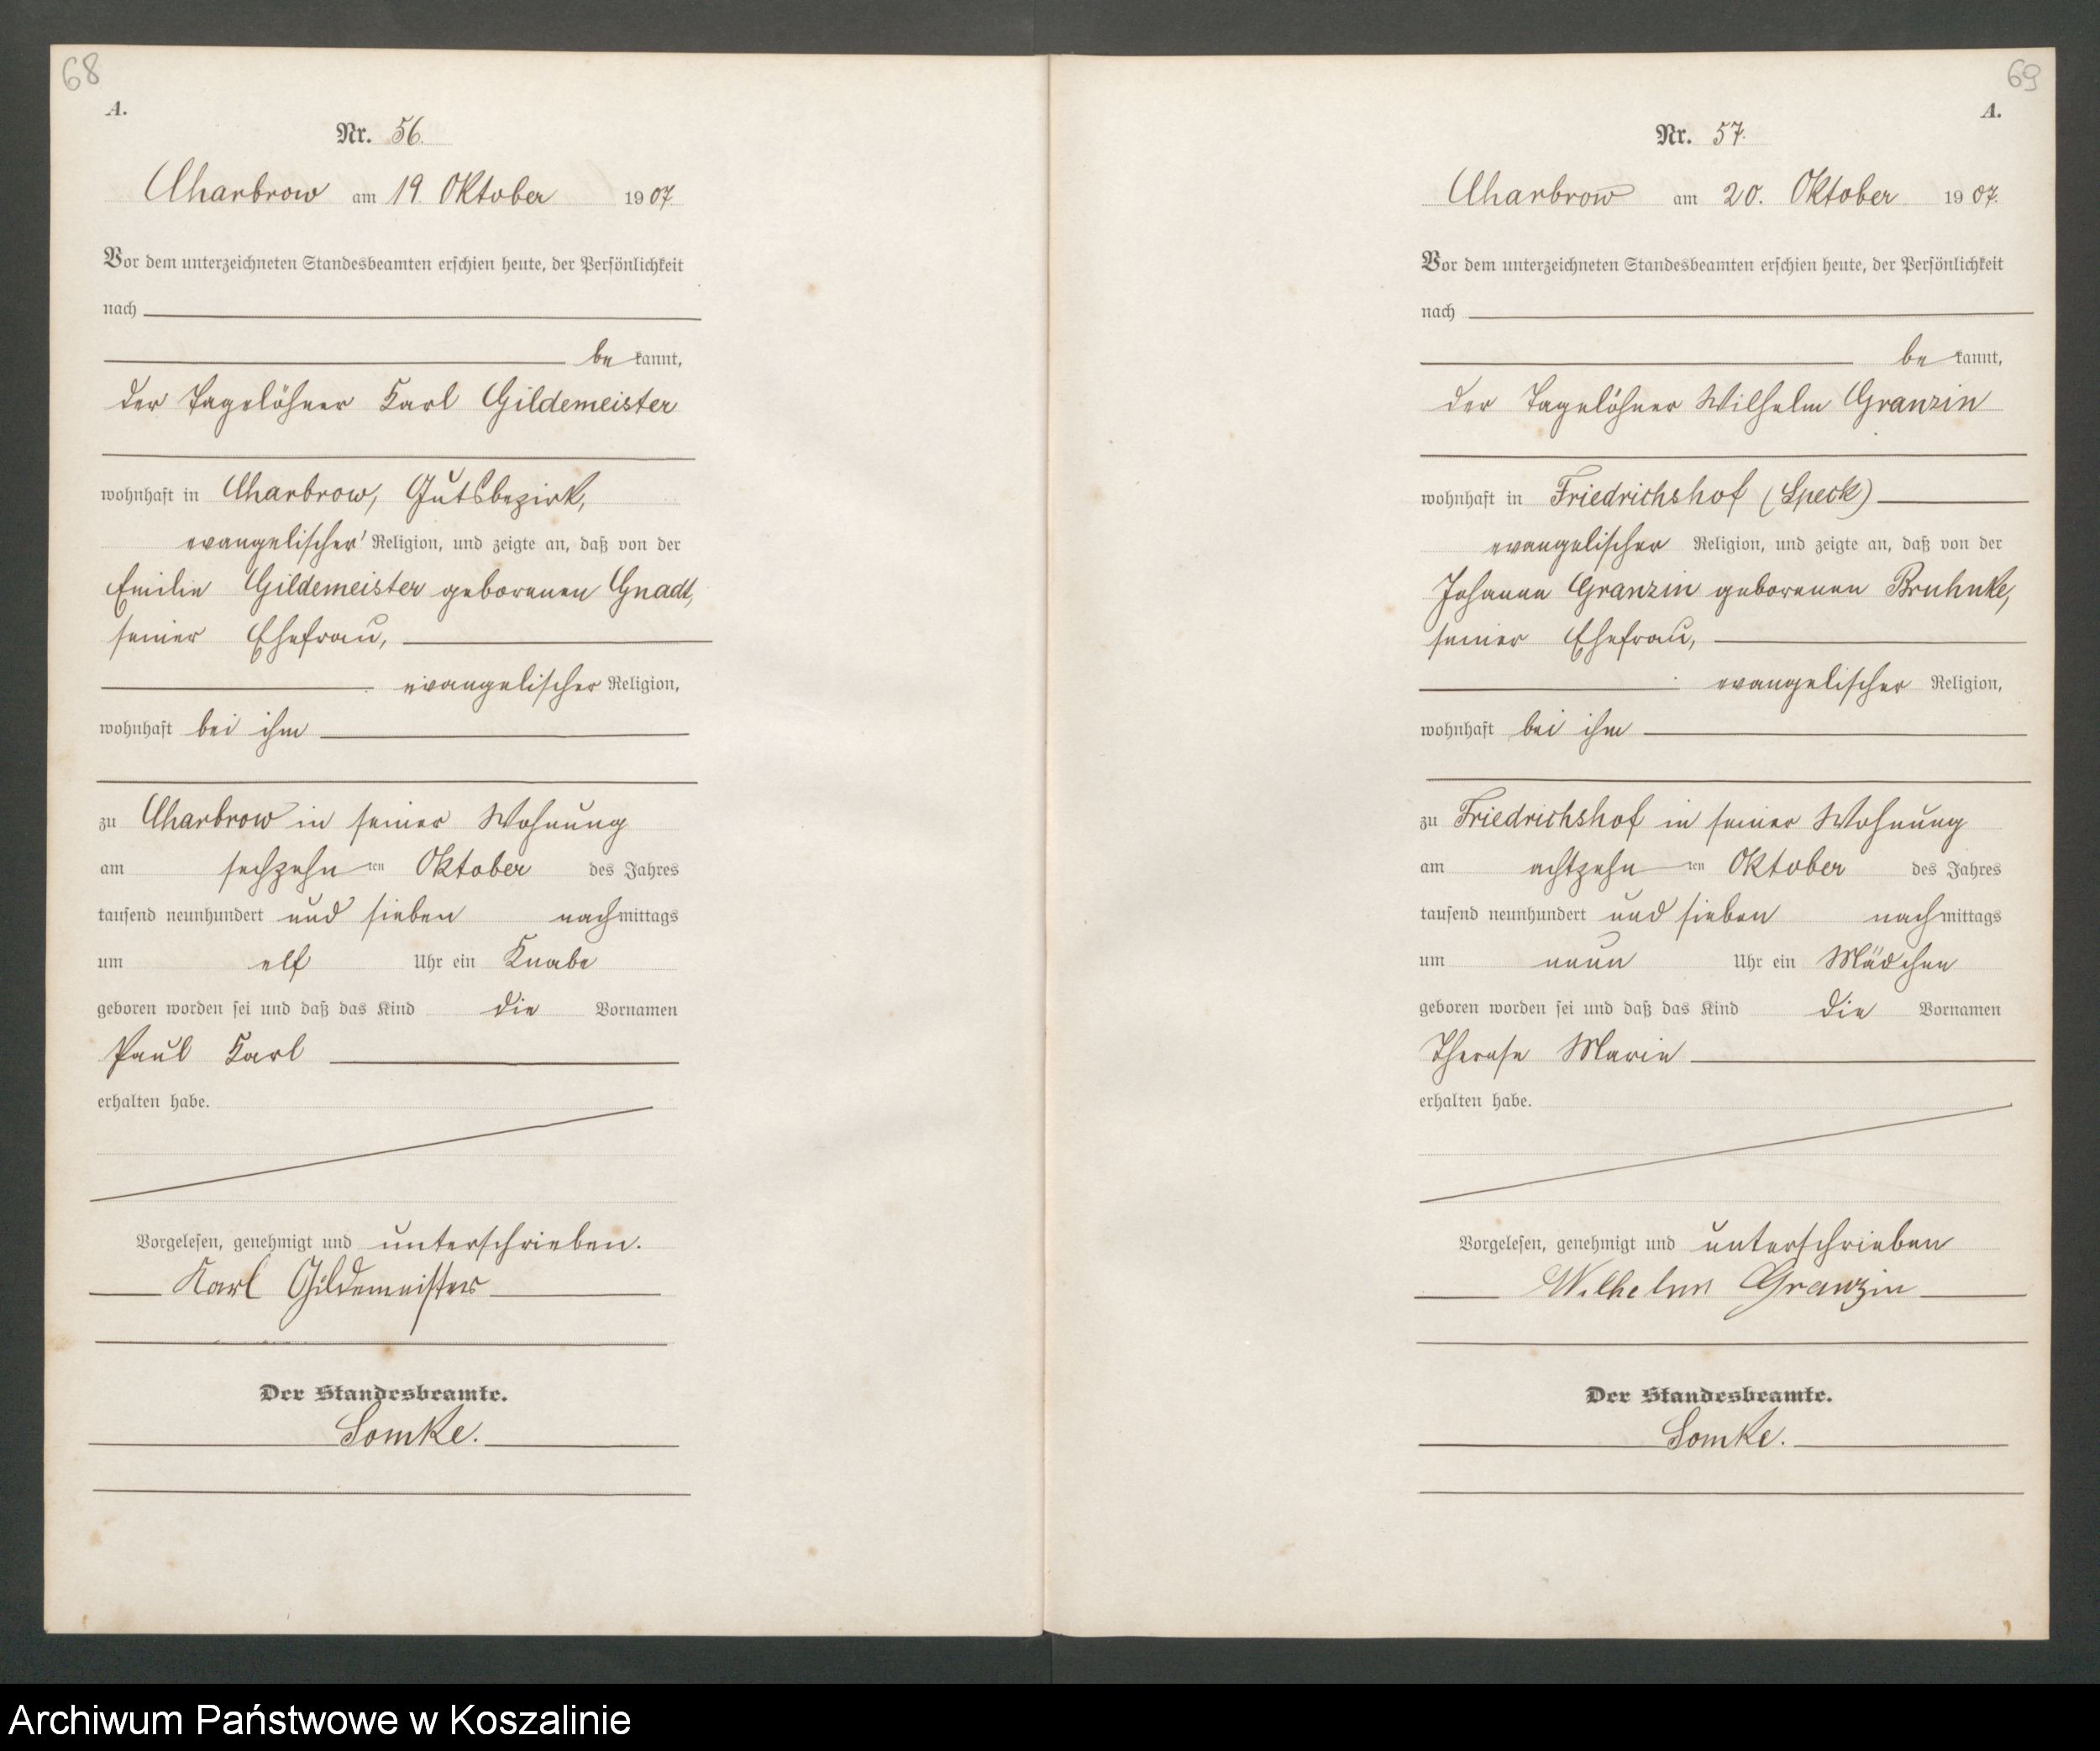 68
A.
Nr. 56.
Charbrow am 19. Oktober 1907.
Vor dem unterzeichneten Standesbeamten erschien heute, der Persönlichkeit
nach
be kannt,
der Tagelöhner Karl Gildemeister
wohnhaft in Charbrow, Gutsbezirk,
evangelischer Religion, und zeigte an, daß von der
Emilie Gildemeister geborenen Gnadt,
seiner Ehefrau,
evangelischer Religion,
wohnhaft bei ihm
zu Charbrow in seiner Wohnung
am sechzehn ten Oktober des Jahres
tausend neunhundert und sieben nachmittags
um elf Uhr ein Knabe
geboren worden sei und daß das Kind die Vornamen
Paul Karl
erhalten habe.
Vorgelesen, genehmigt und unterschrieben.
Karl Gildemeister
Der Standesbeamte.
Somke.
69
A.
Nr. 57.
Charbrow am 20. Oktober 1907.
Vor dem unterzeichneten Standesbeamten erschien heute, der Persönlichkeit
nach
be kannt,
der Tagelöhner Wilhelm Granzin
wohnhaft in Friedrichshof (Speck)
evangelischer Religion, und zeigte an, daß von der
Johanna Granzin geborenen Bruhnke,
seiner Ehefrau,
evangelischer Religion,
wohnhaft bei ihm
zu Friedrichshof in seiner Wohnung
am achtzehn ten Oktober des Jahres
tausend neunhundert und sieben nachmittags
um neun Uhr ein Mädchen
geboren worden sei und daß das Kind die Vornamen
Therese Marie
erhalten habe.
Vorgelesen, genehmigt und unterschrieben
Wilhelm Granzin
Der Standesbeamte.
Somke.
Archiwum Państwowe w Koszalinie